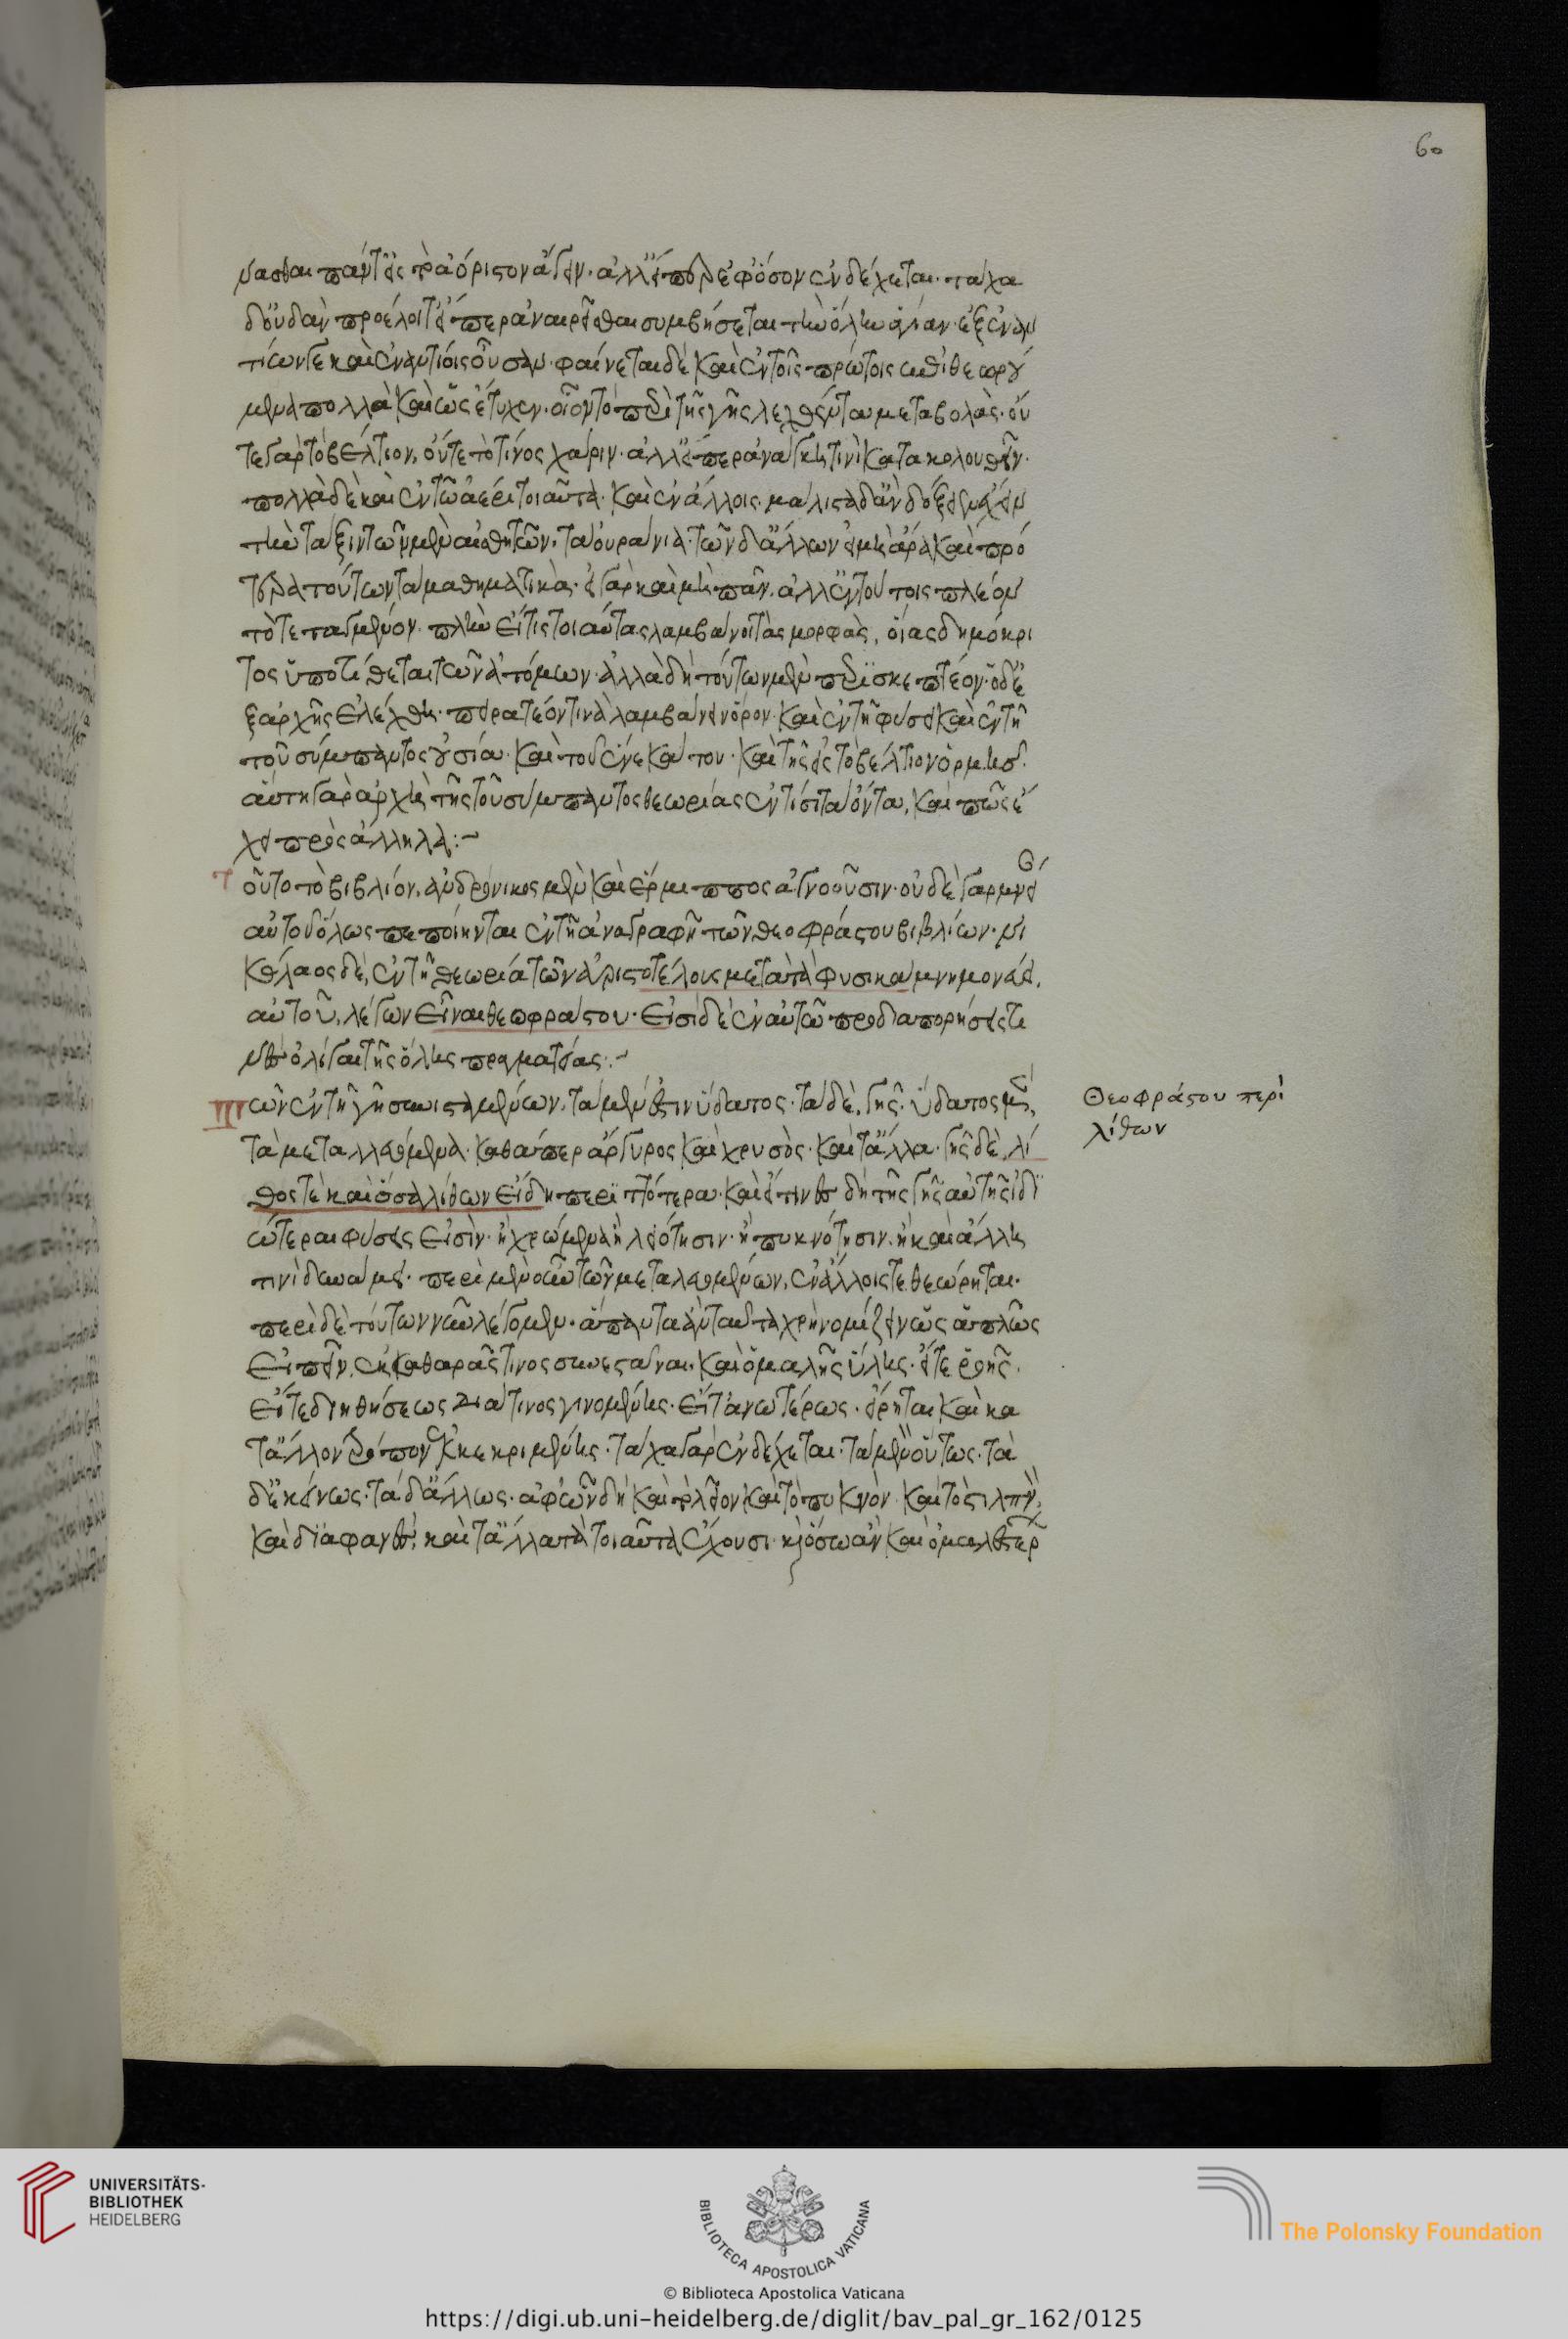 νασθαι πάντ' εἰς τὸ ἀόριστον ἄγειν. ἀλλ' εἴπερ ἐφ' ὅσον ἐνδέχεται. τάχα
δ' οὐδ' ἂν προέλοιτ' εἴπερ ἀναιρεῖσθαι συμβήσεται τὴν ὅλην οὐσίαν. ἐξ ἐναν
τίων γε καὶ ἐναντίοις οὖσαν. φαίνεται δὲ καὶ ἐν τοῖς πρώτοις ἐπιθεωρού
μενα πολλὰ καὶ ὡς ἔτυχεν. οἷον τὸ περὶ τῆς γῆς λεχθέντα μεταβολὰς. οὔ
τε γὰρ τὸ βέλτιον, οὔτε τὸ τίνος χάριν. ἀλλ' εἴπερ ἀνάγκη τινὶ κατακολουθεῖν.
πολλὰ δὲ καὶ ἐν τῷ ἀέρι τοιαῦτα. καὶ ἐν ἄλλοις. μάλιστα δ' ἂν δόξειεν ἔχειν
τὴν τάξιν τῶν μὲν αἰσθητῶν, τὰ οὐράνια. τῶν δ' ἄλλων εἰ μὴ ἄρα καὶ πρό
τερα τούτων τὰ μαθηματικὰ. εἰ γὰρ καὶ μὴ πᾶν. ἀλλ' ἐν τούτοις πλέον
τὸ τεταγμένον. πλὴν εἴ τις τοιαύτας λαμβάνοι τὰς μορφὰς, οἵας δημόκρι
τος ὑποτίθεται τῶν ἀτόμων. ἀλλὰ δὴ τούτων μὲν περὶ σκεπτέον. ὃ δὲ ἐ
ξαρχῆς ἐλέχθη. πειρατέον τινὰ λαμβάνειν ὅρον. καὶ ἐν τῇ φύσει καὶ ἐν τῇ
τοῦ σύμπαντος οὐσία. καὶ τοῦ ἕνεκά του. καὶ τῆς εἰς τὸ βέλτιον ὁρμῆς.
αὕτη γὰρ ἀρχὴ τῆς τοῦ σύμπαντος θεωρίας ἐν τίσι τὰ ὄντα, καὶ πῶς ἔ
χει πρὸς ἄλληλα:~
Τοῦτο τὸ βιβλίον, ἀνδρόνικος μὲν καὶ ἕρμιππος ἀγνοοῦσιν. οὐδὲ γὰρ μνεί
αὐτοῦ ὅλως πεποίηνται ἐν τῇ ἀναγραφῇ τῶν θεοφράστου βιβλίων. νι
κόλαος δὲ, ἐν τῇ θεωρία τῶν ἀριστοτέλους μετὰ τὰ φυσικὰ μνημονεύει
αὐτοῦ, λέγων εἶναι θεοφράστου. εἰσὶ δὲ ἐν αὐτῷ προδιαπορήσεις τι
νὲς ὀλίγαι τῆς ὅλης πραγματείας:~
Τῶν ἐν τῇ γῇ συνισταμένων, τὰ μέν ἐστιν ὕδατος. τὰ δὲ, γῆς. ὕδατος μὲν,
τὰ μεταλλευόμενα. καθάπερ ἄργυρος καὶ χρυσὸς. καὶ τἄλλα. γῆς δὲ, λί
θος τὲ καὶ ὅσα λίθων εἴδη περιττότερα. καὶ εἴ τινες δὴ τῆς γῆς αὐτῆς ἰδι
ώτεραι φύσεις εἰσὶν. ἢ χρώμασιν ἢ λειότησιν. ἢ πυκνότησιν. ἢ καὶ ἄλλη
τινὶ δυνάμει. περὶ μὲν οὖν τῶν μεταλευομένων, ἐν ἄλλοις τεθεώρηται.
περὶ δὲ τούτων νῦν λέγομεν. ἅπαντα οὖν ταῦτα χρὴ νομίζειν ὡς ἁπλῶς
εἰπεῖν, ἐκ καθαρᾶς τινος συνεστάναι. καὶ ὁμαλῆς ὕλης. εἴτε ῥοῆς.
εἴτε διηθήσεως διά τινος γινομένης. εἴτ' ἀνωτέρως. εἴρηται καὶ κα
τ' ἄλλον τρόπον ἐκκεκριμένης. τάχα γὰρ ἐνδέχεται. τὰ μὲν οὕτως. τὰ
δ' ἐκείνως. τὰ δ' ἄλλως. ἀφ' ὧν δὴ καὶ τὸ λεῖον καὶ τὸ πυκνὸν. καὶ τὸ στιλπνὸν.
καὶ διαφανὲς. καὶ τἄλλα τὰ τοιαῦτα ἔχουσι. καὶ ὅσω ἂν καὶ ὁμαλέστερ
60
Θεοφράστου περὶ
λίθων
UNIVERSITÄTS-
BIBLIOTHEK
HEIDELBERG
BIBLIOTECA APOSTOLICA VATICANA
© Biblioteca Apostolica Vaticana
The Polonsky Foundation
https://digi.ub.uni-heidelberg.de/diglit/bav_pal_gr_162/0125